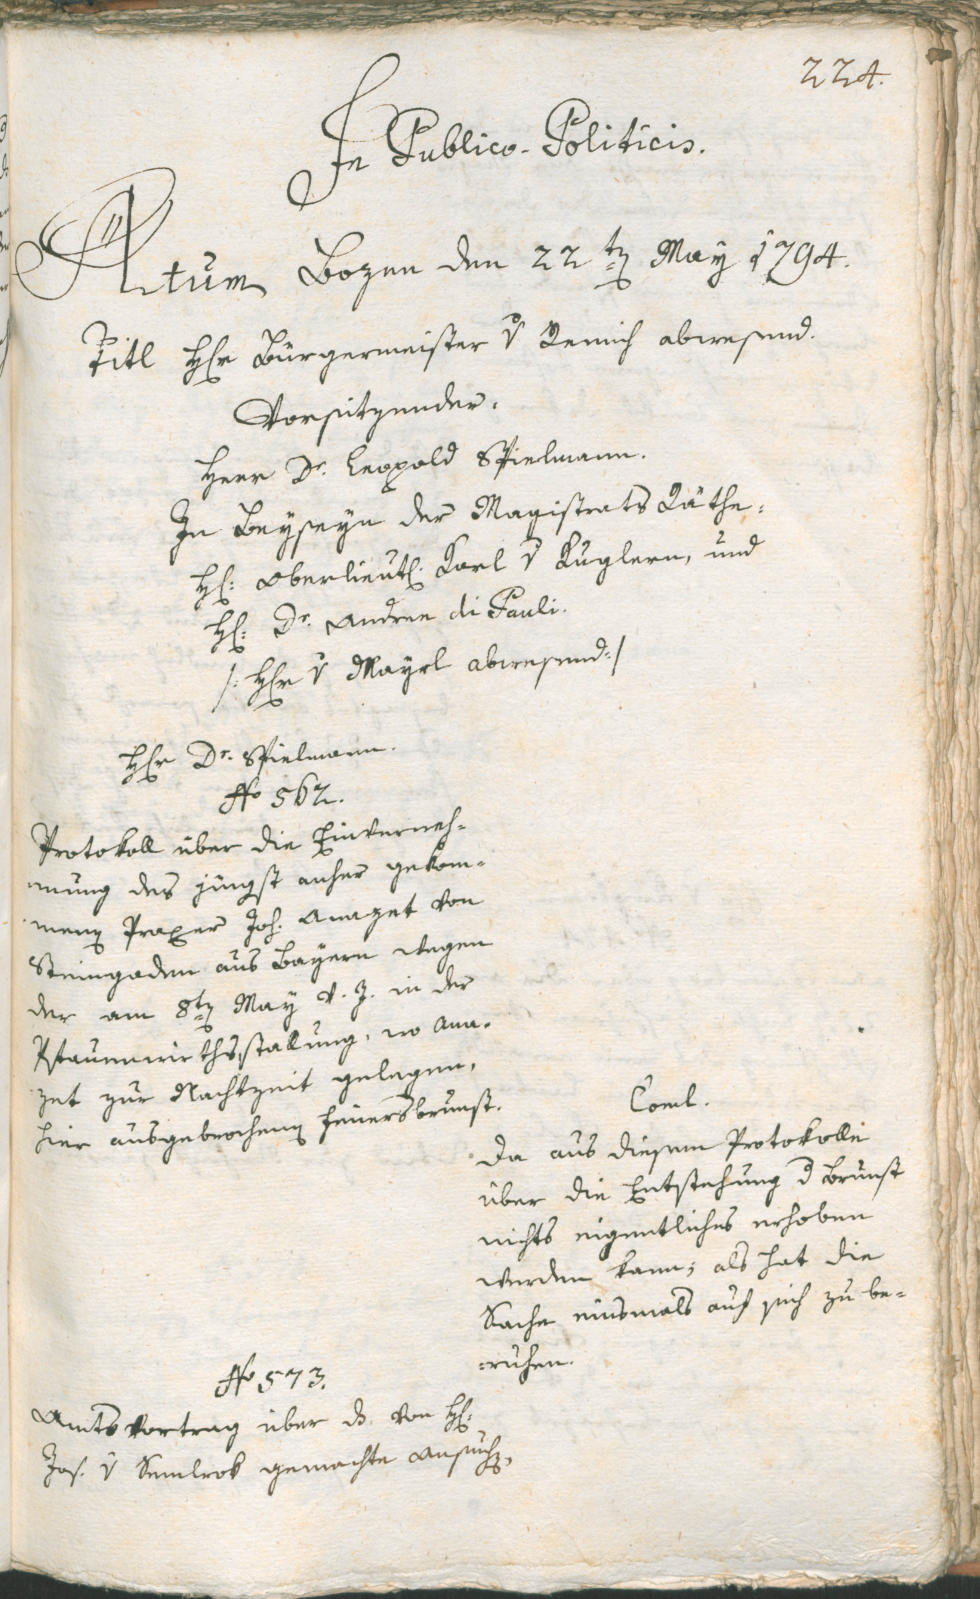 224.
In Publico-Politicis.
Actum Bozen den 22ten May 1794.
Titl Herr Bürgermeister v Remich abwesend.
Vorsitzender.
Herr Dr. Leopold Spielmann.
In Beyseyn der Magistrats Räthe:
H: Oberlieut: Karl v Kuglern, und
H: Dr. Andree di Pauli.
/: Herr v Mayrl abwesend :/
Herr Dr. Spielmann.
No 562.
Protokoll über die Einverneh-
mung des jüngst anher gekom-
menen Praxer Joh. Anazet von
Steingaden aus Bayern wegen
der am 8ten May d. J. in der
Pfauenwirthsstallung, wo Ana-
zet zur Nachtzeit gelegen,
hier ausgebrochenen Feuersbrunst.
Concl.
Da aus diesem Protokolle
über die Entstehung d Brunst
nichts eigentliches erhoben
werden kann; als hat die
Sache einsmals auf sich zu be-
ruhen.
No 573.
Amtsvortrag über ds von H:
Jos. v gemachte Ansuchen,